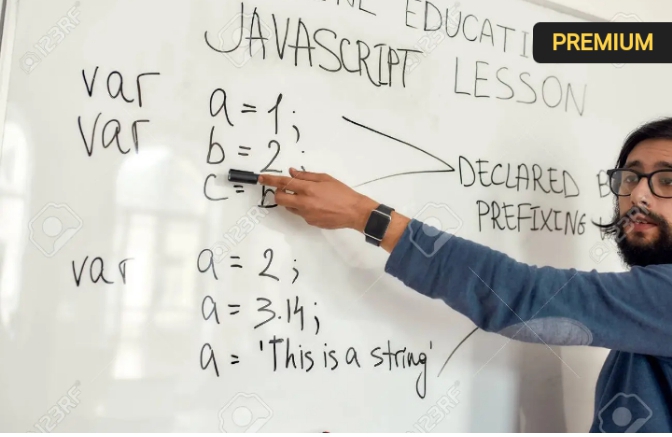 EDUCATI
PREMIUM
JAVASCRIPT LESSON
var a = 1;
var b = 2;
c = b
DECLARED
PREFIXING
var a = 2;
a = 3.14;
a = 'This is a string'
123RF